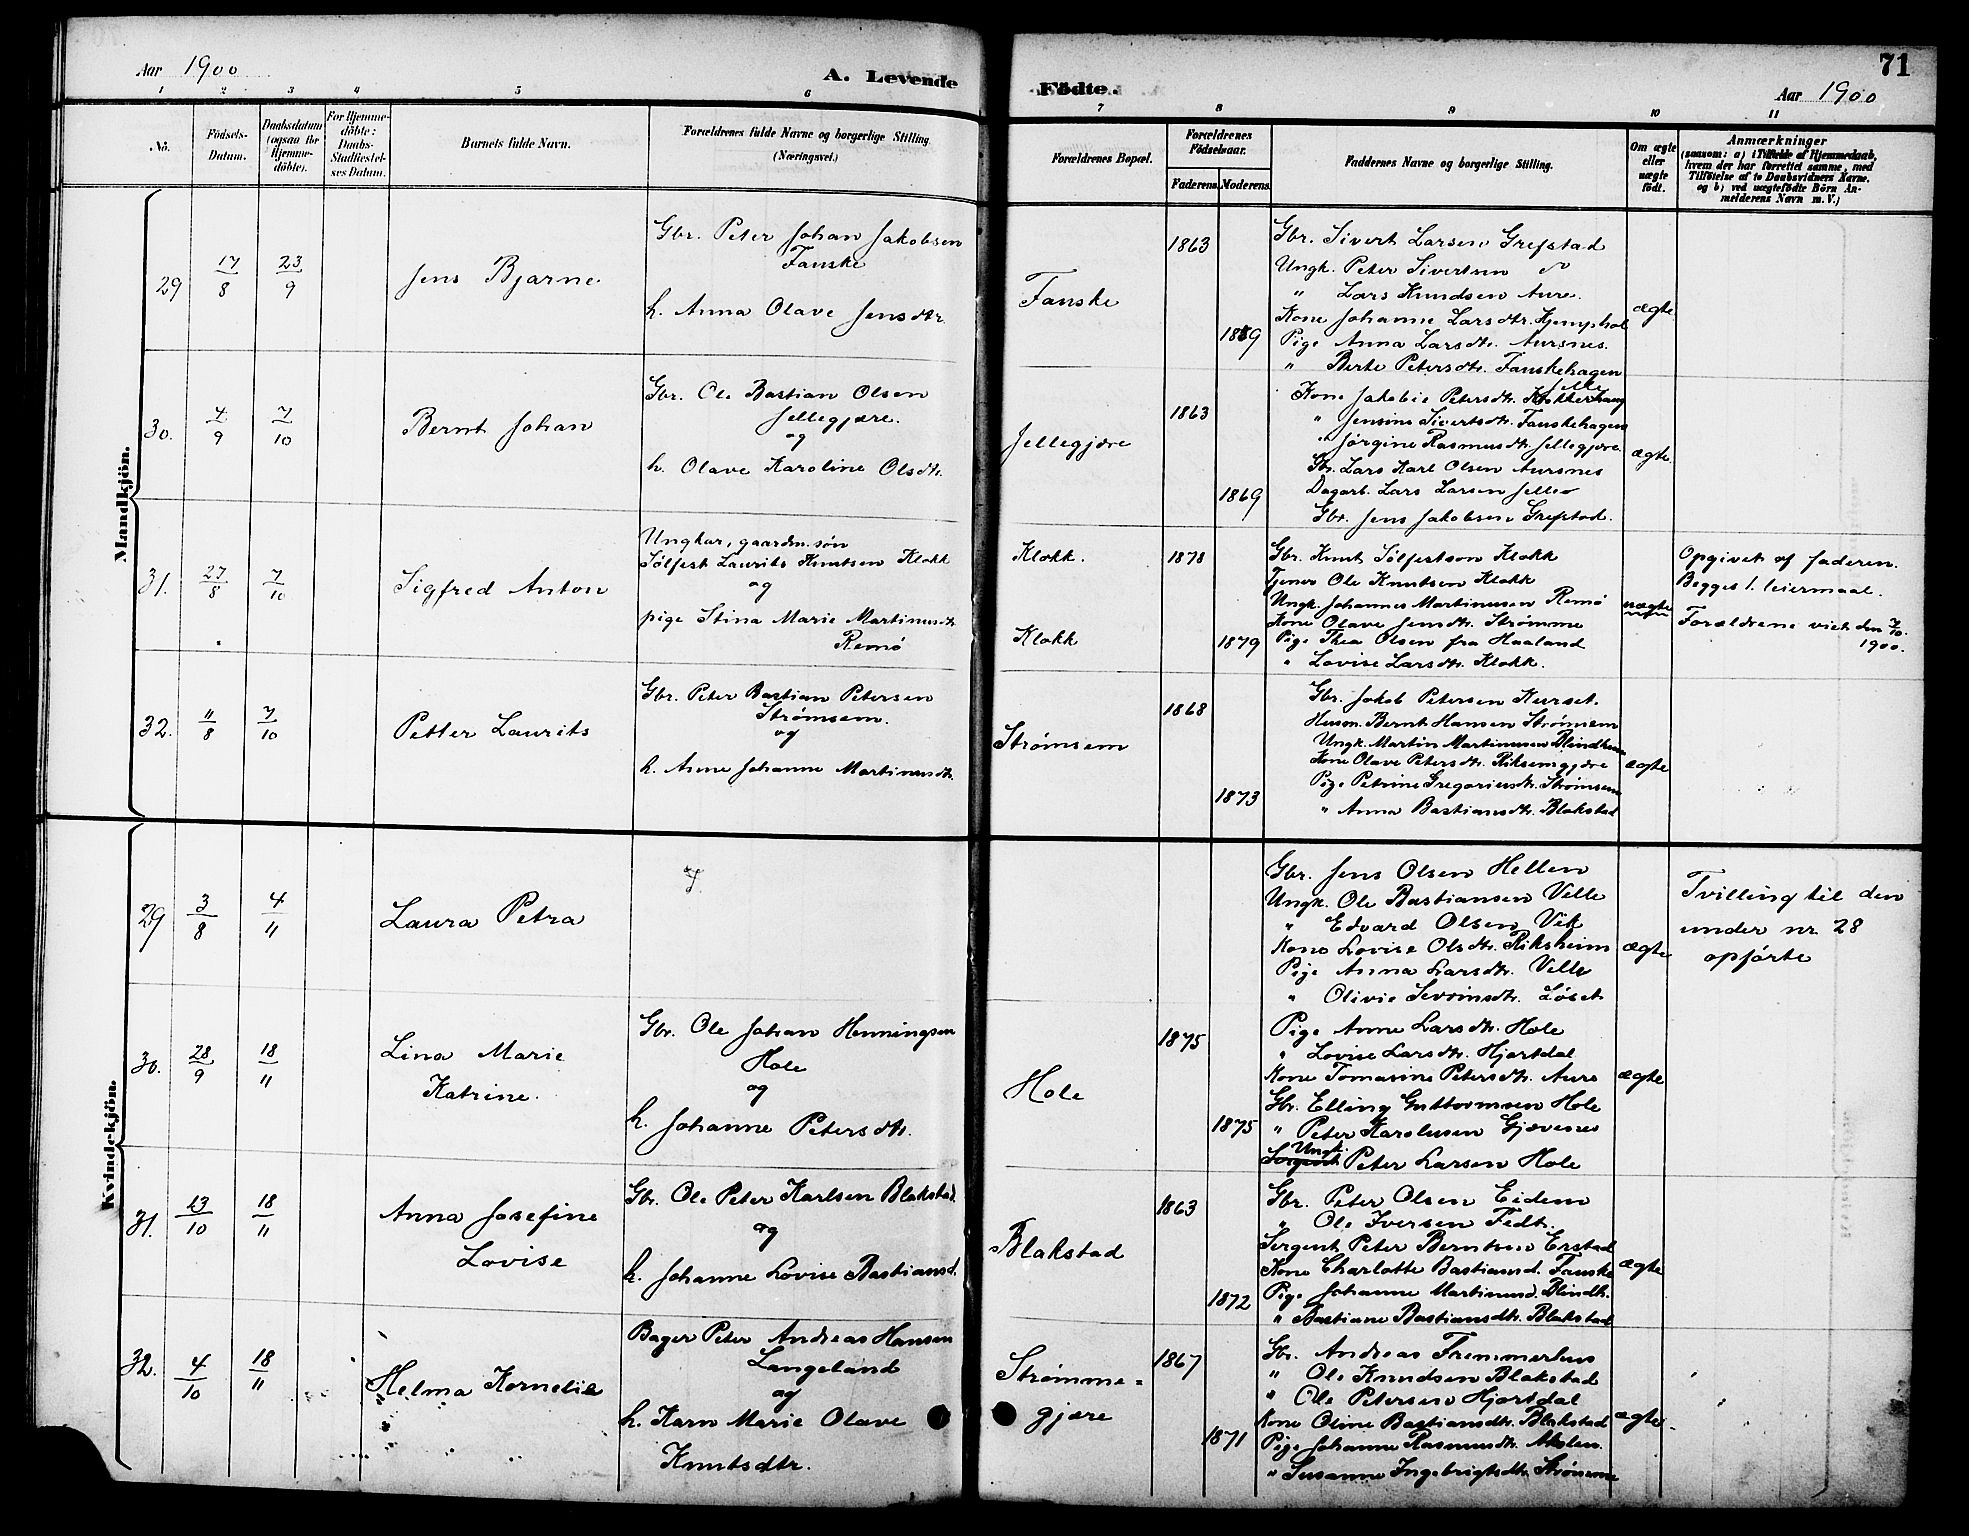 Aar 1900
A. Levende
Födte.
71
Aar 1900
1 2 3 4 5 6 7 8 9 10 11
No.
Födsels-
Datum.
Daabsdatum
(ogsaa for
Hjemme-
döbte).
For Hjemme-
döbte:
Daabs-
Stadfæstel-
ses Datum.
Barnets fulde Navn.
Forældrenes fulde Navne og borgerlige Stilling
(Næringsvei.)
Forældrenes Bopæl.
Forældrenes
Födselsaar.
Faderens.
Moderens.
Faddernes Navne og borgerlige Stilling.
Om ægte
eller
uægte
födt.
Anmærkninger
(saasom: a) i Tilfælde af Hjemmedaab,
hvem der har forrettet samme, med
Tilföielse af to Daabsvidners Navne.
og b) ved uægtefödte Börn An-
melderens Navn m. V.)
Mandkjön.
29
17/8
23/9
Jens Bjarne
Gbr. Peter Johan Jakobsen
Fauske
h. Anna Olave Jensdtr.
Fauske
1863
1859
Gbr. Sivert Larsen Grefstad
Ungk. Peter Sivertsen
" Lars Knudsen Aure.
Kone Johanne Larsdtr. Kjemphol
Pige Anna Larsdtr. Aursnes.
" Berte Petersdtr. Fauskehagen
ægte
30.
4/9
7/10
Bernt Johan
Gbr. Ole Bastian Olsen
Jellegjære.
og
h. Olave Karoline Olsdtr.
Jellegjære
1863
1869
Kone Jakobie Petersdtr.
" Jensine Sivertsdtr. Fauskehagen
" Jørgine Rasmusdtr. Jellegjære
Gbr. Lars Karl Olsen Aursnes
Dagarb. Lars Larsen Jelle
Gbr. Jens Jakobsen Grefstad.
ægte
31.
27/8
7/10
Sigfred Anton
Ungkar, gaardm.søn
Sølfest Laurits Knutsen Klokk
og
pige Stina Marie Martinusdtr
Remø
Klokk.
Klokk
1878
1879
Gbr. Knut Sølfestson Klokk
Tjener Ole Knutsen Klokk
Ungk. Johannes Martinusen Remø
Kone Olave Jensdtr. Strømme
Pige Thea Olsen fra Haaland
" Lovise Larsdtr. Klokk.
uægte
Opgivet af faderen.
Begges 1. leiermaal.
Forældrene viet den 7/10.
1900.
32.
11/8
7/10
Petter Laurits
Gbr. Peter Bastian Petersen
Strømsem.
og
h. Anne Johanne Martinusdtr.
Strømsem
1868
1873
Gbr. Jakob Petersen Kurset.
Husm. Bernt Hansen Strømsem
Ungk. Martin Martinusen Blindheim
Kone Olave Petersdtr. Riksemgjære
Pige Petrine Gregoriusdtr. Strømsem
" Anna Bastiansdtr. Blakstad
ægte
Kvindekjön.
29
3/8
4/11
Laura Petra
Gbr. Jens Olsen Hellen
Ungk. Ole Bastiansen Velle
" Edvard Olsen Vik
Kone Lovise Olsdtr. Riksheim
Pige Anna Larsdtr. Velle
" Olivie Severinsdtr. Løset
ægte
Tvilling til den
under nr. 28
opførte
30.
28/9
18/11
Lina Marie
Katrine.
Gbr. Ole Johan Henningsen
Hole
og
h. Johanne Petersdtr.
Hole
1875
1875
Pige Anne Larsdtr. Hole
" Lovise Larsdtr. Hjortdal
Kone Tomasine Petersdtr. Aure
Gbr. Elling Guttormsen Hole
" Peter Karolusen Gjævenes
Ungk.
Sergeant Peter Larsen Hole
ægte
31.
13/10
18/11
Anna Josefine
Lovise
Gbr. Ole Peter Karlsen Blakstad.
og
h. Johanne Lovise Bastiansd.
Blakstad
1863
1872
Gbr. Peter Olsen Eidem
" Ole Iversen Fedt.
Sergent Peter Berntsen Erstad
Kone Charlotte Bastiansd. Fauske
Pige Johanne Martinusd. Blindh.
" Bastiane Bastiansdtr. Blakstad
ægte
32.
4/10
18/11
Helma Kornelie
Bager Peter Andreas Hansen
Langeland
og
h. Karn Marie Olave
Knutsdtr.
Strømme-
gjære
1867
1871
Gbr. Andreas Fremmerhus
" Ole Knudsen Blakstad
" Ole Petersen Hjortdal
Kone Oline Bastiansdtr. Blakstad
Pige Johanne Rasmusdtr.
" Susanne Ingebrigtsdtr. Strømme
ægte